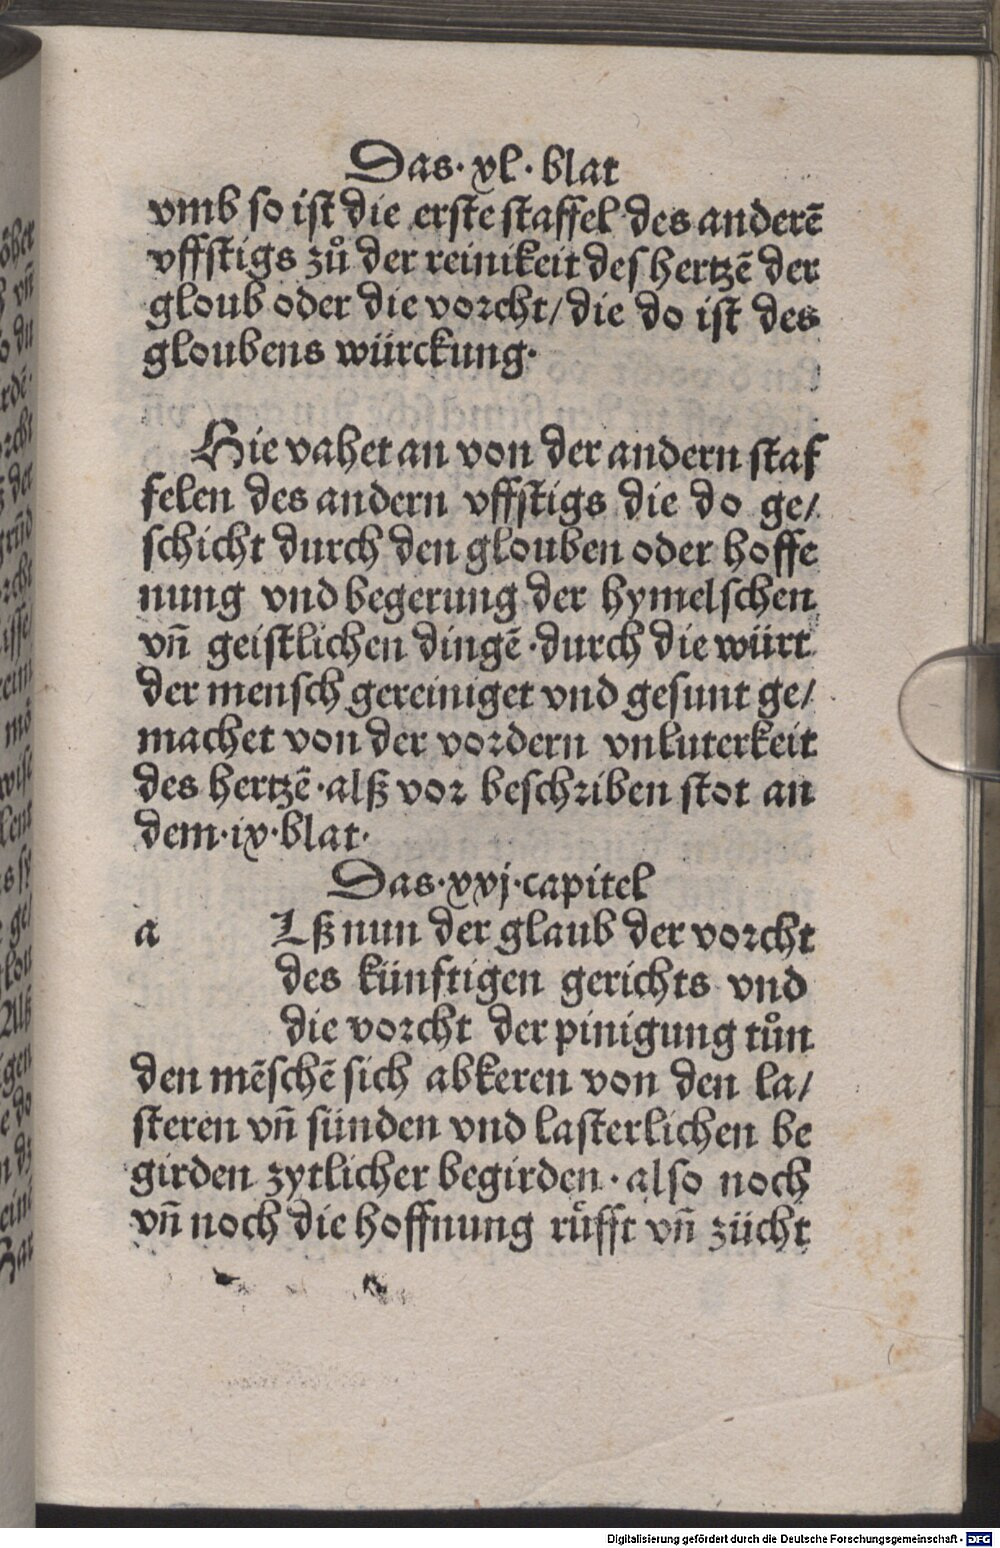 Das·xl·blat
vmb so ist die erste staffel des anderē
vffstigs zů der reinikeit des hertzē der
gloub oder die vorcht/die do ist des
gloubens würckung·
Hie vahet an von der andern staf
felen des andern vffstigs die do ge/
schicht durch den glouben oder hoffe
nung vnd begerung der hymelschen
vn̄ geistlichen dingē·durch die würt
der mensch gereiniget vnd gesunt ge/
machet von der vordern vnluterkeit
des hertzē·alß vor beschriben stot an
dem·ix·blat·
Das·xvj·capitel
a Lß nun der glaub der vorcht
des künftigen gerichts vnd
die vorcht der pinigung tůn
den mēschē sich abkeren von den la/
steren vn̄ sünden vnd lasterlichen be
girden zytlicher begirden·also noch
vn̄ noch die hoffnung růfft vn̄ zücht
Digitalisierung gefördert durch die Deutsche Forschungsgemeinschaft - DFG